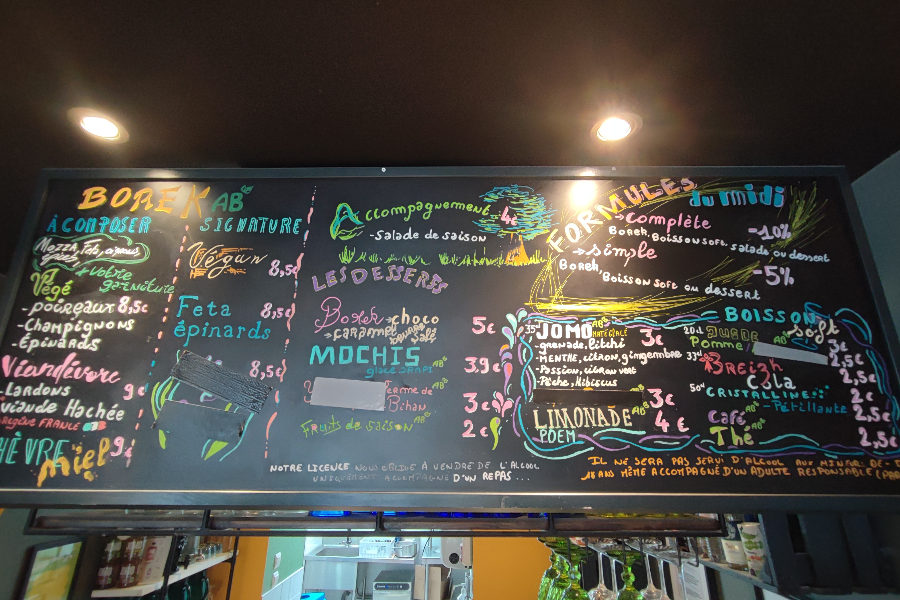 BOREK AB
À COMPOSER
+ votre garniture
Végé
- poireaux 8,5€
- Champignons
- Épinards
Viandivore
- Lardons 9€
- viande Hachée
origine FRANCE
CHÈVRE 9€
miel
SIGNATURE
Végan 8,5€
Feta 8,5€
épinards
8,5€
Accompagnement 4€
- Salade de saison
LES DESSERTS
Borek → choco 5€
→ caramel beurre salé
MOCHIS 3.9€
glacé
ferme de 3€
Bihan
Fruits de saison AB 2€
FORMULES du midi
→ complète -10%
Borek, Boisson soft, salade ou dessert
→ simple -5%
Borek,
Boisson soft ou dessert
BOISSON Soft
35 JOMO AB 3€
MATÉ GLACÉ
- grenade, litchi
- MENTHE, citron, gingembre
- Passion, citron vert
- Pêche, Hibiscus
AB 3€
LIMONADE 4€
POEM
20cl Jus de 3€
Pomme AB
2,5€
33cl Breizh 2,5€
Cola
50cl CRISTALLINE 2€
- Pétillante
Café AB 2,5€
Thé AB 2,5€
NOTRE LICENCE NOUS OBLIGE À VENDRE DE L'ALCOOL
UNIQUEMENT ACCOMPAGNÉ D'UN REPAS...
IL NE SERA PAS SERVI D'ALCOOL AUX MINEURS DE
18 ANS MÊME ACCOMPAGNÉ D'UN ADULTE RESPONSABLE